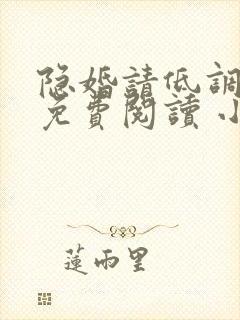 隐婚請低調
免費閱讀 小
蓮雨里